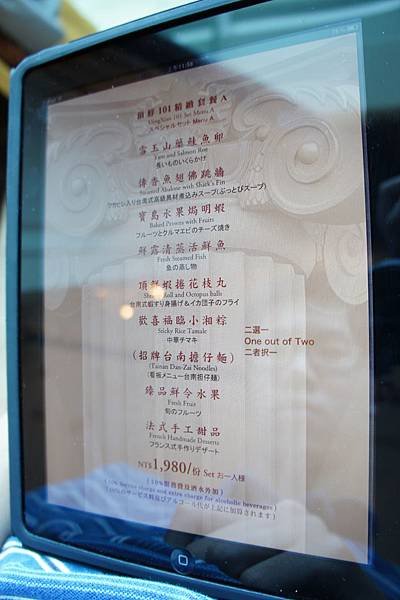 上午11:58
頂鮮101精緻套餐A
DingXian 101 Set Menu A
スペシャルセット Menu A
雪玉山藥鮭魚卵
Yam and Salmon Roe
長いものいくらかけ
傳香魚翅佛跳牆
Steamed Abalone with Shark's Fin
フカヒレ入り台湾式高級具材煮込みスープ(ぶっとびスープ)
寶島水果焗明蝦
Baked Prawns with Fruits
フルーツとクルマエビのチーズ焼き
鮮露清蒸活鮮魚
Fresh Steamed Fish
魚の蒸し物
頂鮮蝦捲花枝丸
Shrimp Roll and Octopus balls
台南式蝦すり身揚げ&イカ団子のフライ
歡喜福臨小湘粽
Sticky Rice Tamale
中華チマキ
二選一
One out of Two
二者択一
(招牌台南擔仔麵)
(Tainan Dan-Zai Noodles)
(看板メニュー台南担仔麺)
臻品鮮令水果
Fresh Fruit
旬のフルーツ
法式手工甜品
French Handmade Desserts
フランス式手作りデザート
NT$1,980/份 Set お一人様
(10%服務費及酒水外加)
(10% Service charge and extra charge for alcoholic beverages)
(10%のサービス料及びアルコール代が上記に加算されます)